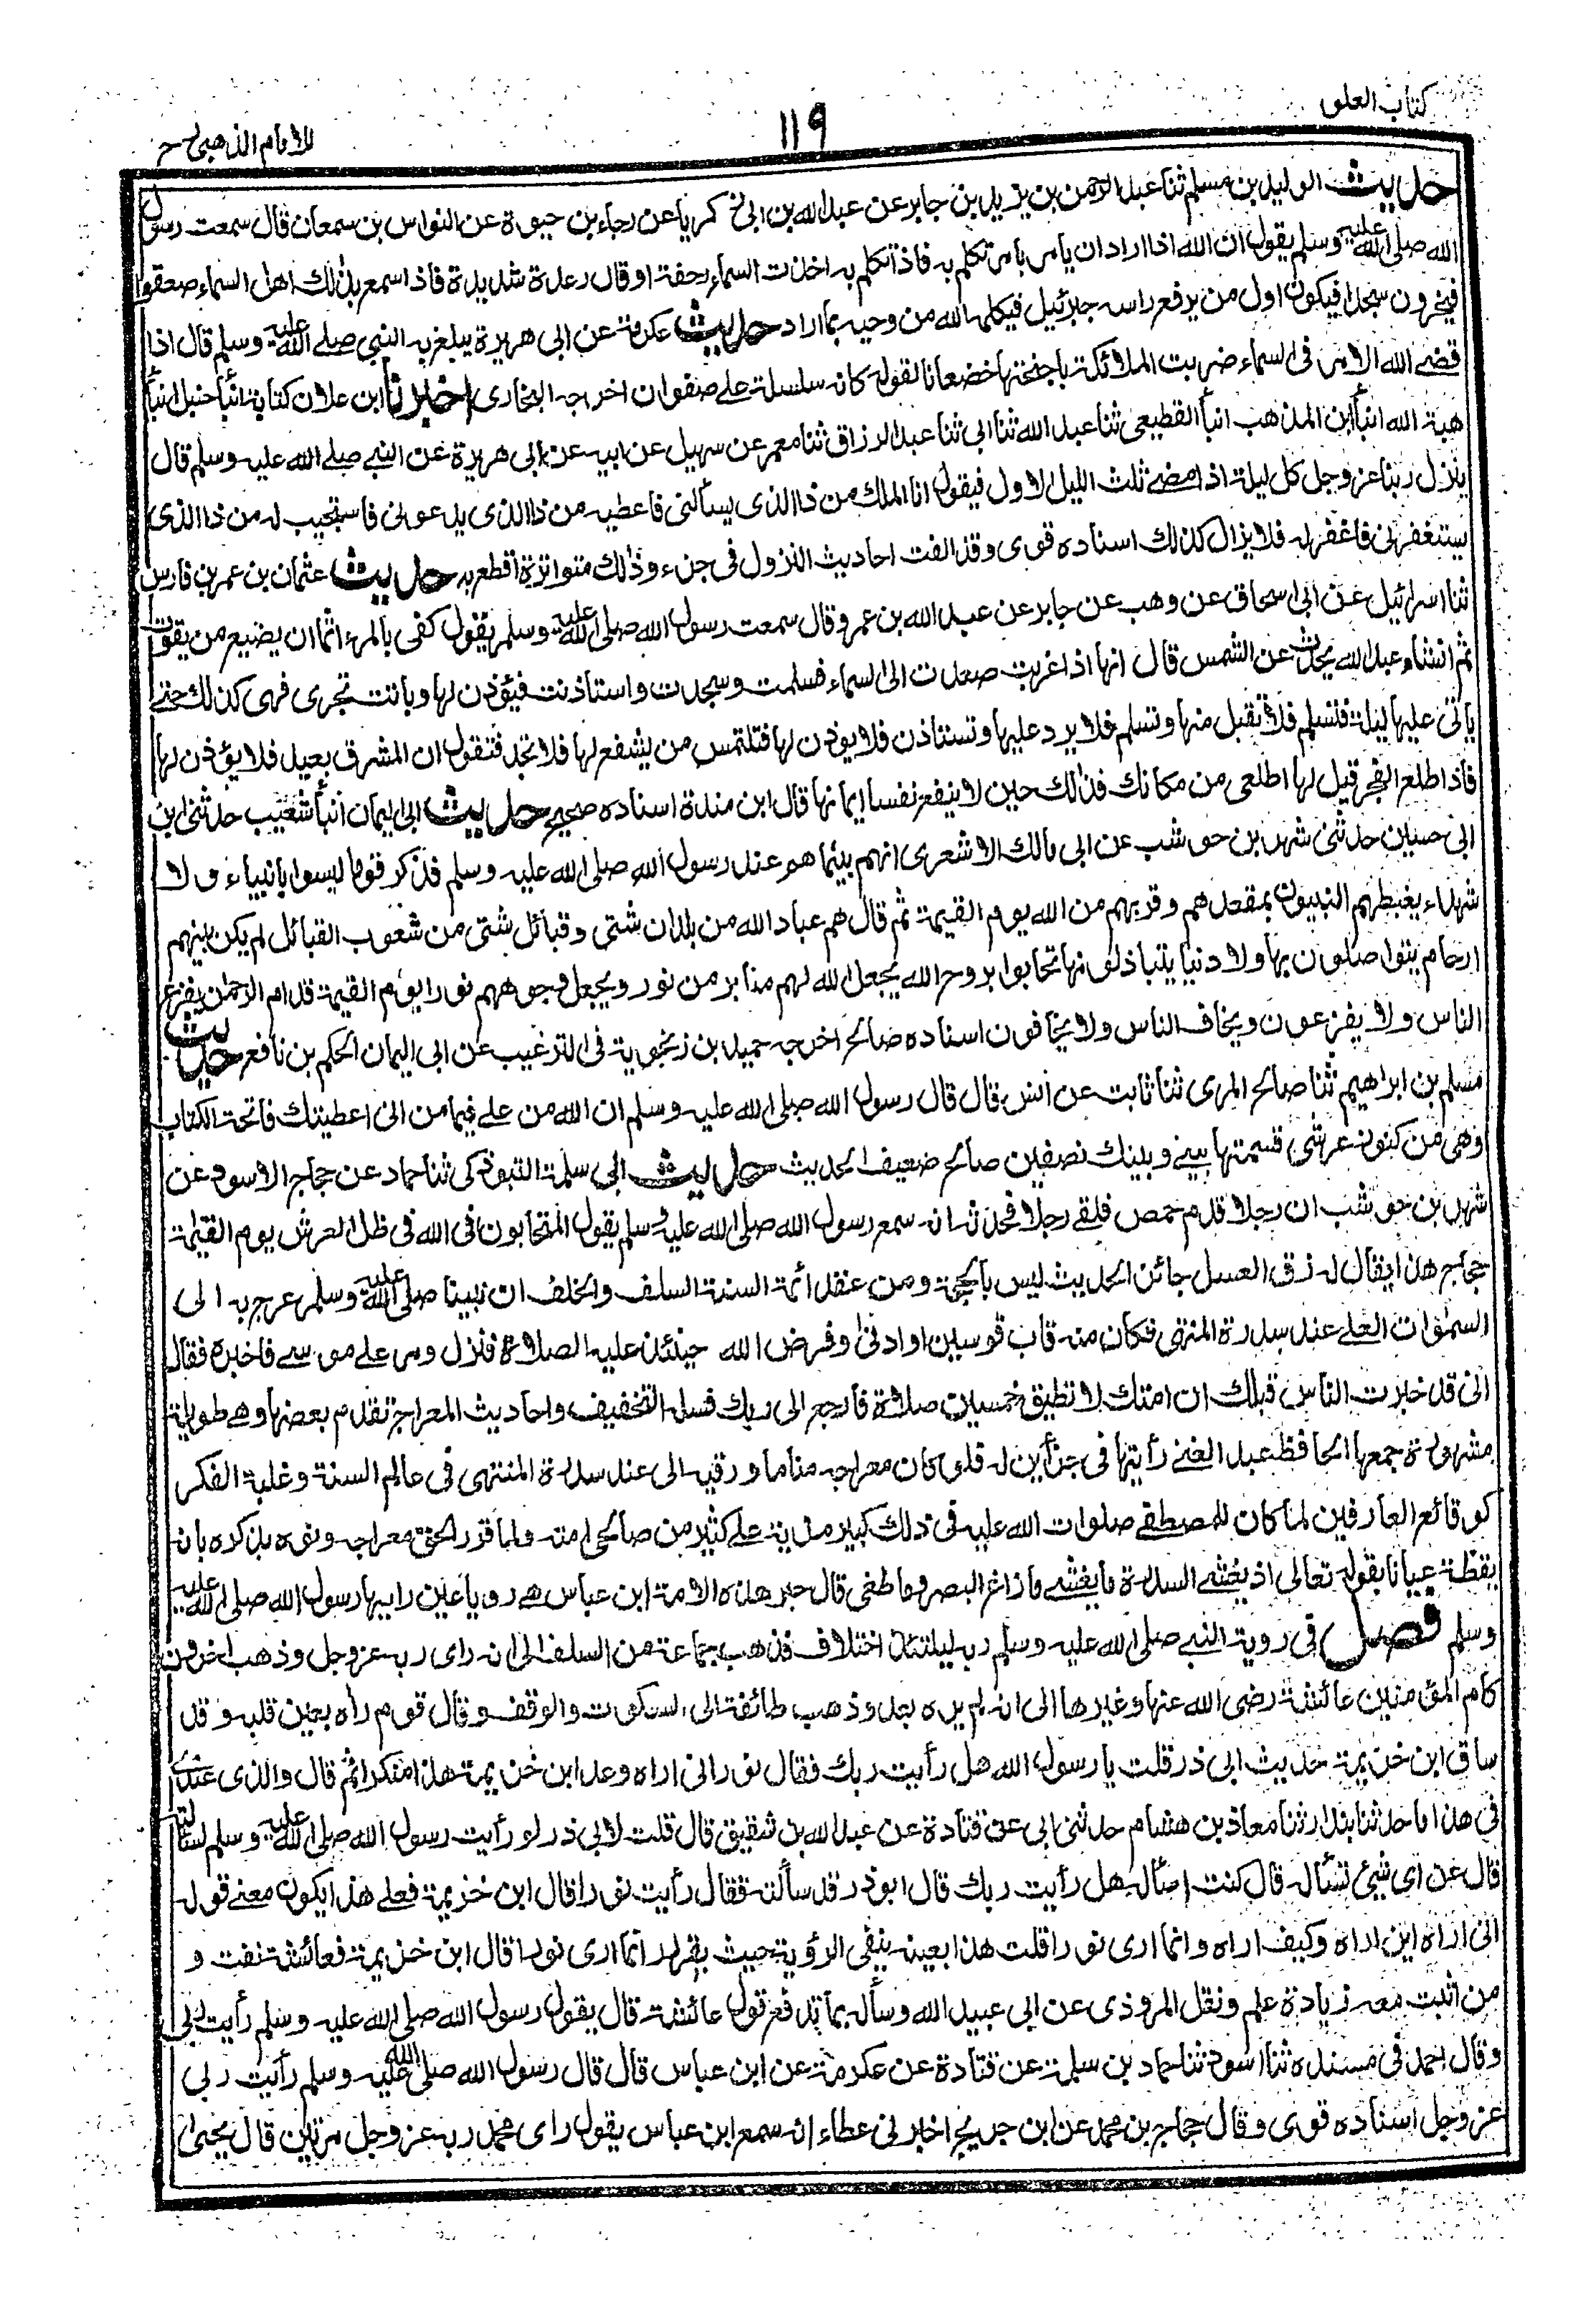 كتاب العلو
١١٩
للامام الذهبي رح
حديث الوليد بن مسلم ثنا عبد الرحمن بن يزيد بن جابر عن عبد الله بن ابي زكريا عن رجاء بن حيوة عن النواس بن سمعان قال سمعت رسول
الله صلى الله عليه وسلم يقول ان الله اذا اراد ان يامر بامر تكلم به فاذا تكلم به اخذت السماء رجفة او قال رعدة شديدة فاذا سمع بذلك اهل السماء صعقوا
فيخرون سجدا فيكون اول من يرفع راسه جبرئيل فيكلمه الله من وحيه بما اراد حديث عكرمة عن ابي هريرة يبلغ به النبي صلے الله عليه وسلم قال اذا
قضے الله الامر في السماء ضربت الملائكة باجنحتها خضعانا لقوله كانه سلسلة علے صفوان اخرجه البخاري اخبرنا ابن علان كتابة انبأ حنبل انبأ
هبة الله انبأ ابن المذهب انبأ القطيعي ثنا عبد الله ثنا ابي ثنا عبد الرزاق ثنا معمر عن سهيل عن ابيه عن ابي هريرة عن النبے صلے الله عليه وسلم قال
ينزل ربنا عز وجل كل ليلة اذا مضے ثلث الليل الاول فيقول انا الملك من ذا الذي يسألني فاعطيه من ذا الذي يدعوني فاستجيب له من ذا الذي
يستغفرني فاغفر له فلا يزال كذلك اسناده قوي وقد الفت احاديث النزول في جزء وذلك متواترة اقطع به حديث عثمان بن عمر بن فارس
ثنا اسرائيل عن ابي اسحاق عن وهب عن جابر عن عبد الله بن عمرو قال سمعت رسول الله صلى الله عليه وسلم يقول كفى بالمرء اثما ان يضيع من يقوت
ثم انشاء عبد الله يحدث عن الشمس قال انها اذا غربت صعدت الى السماء فسلمت وسجدت واستاذنت فيؤذن لها وبانت تجري فهي كذلك حتے
ياتي عليها ليلة فتسلم فلا تقبل منها وتسلم فلا يرد عليها وتستاذن فلا يوذن لها فتلتمس من يشفع لها فلا تجد فتقول ان المشرق بعيد فلا يؤذن لها
فاذا طلع الفجر قيل لها اطلعي من مكانك فذلك حين لا ينفع نفسا ايمانها قال ابن مندة اسناده صحيح حديث ابي اليمان انبأ شعيب حدثني ابن
ابي حسين حدثني شهر بن حوشب عن ابي مالك الاشعري انهم بينما هم عند رسول الله صلى الله عليه وسلم فذكر قوما ليسوا بانبياء ولا
شهداء يغبطهم النبيون بمقعدهم وقربهم من الله يوم القيمة ثم قال هم عباد الله من بلدان شتى وقبائل شتى من شعوب القبائل لم يكن بينهم
ارحام يتواصلون بها ولا دنيا يتباذلونها تحابوا بروح الله يجعل الله لهم منابر من نور ويجعل وجوههم نورا يوم القيمة قدام الرحمن يفزع
الناس ولا يفزعون ويخاف الناس ولا يخافون اسناده صالح اخرجه حميد بن زنجوية في الترغيب عن ابي اليمان الحكم بن نافع حديث
مسلم بن ابراهيم ثنا صالح المري ثنا ثابت عن انس قال قال رسول الله صلى الله عليه وسلم ان الله من علے فيما من اني اعطيتك فاتحة الكتاب
وهي من كنوز عرشي قسمتها بينے وبينك نصفين صالح ضعيف الحديث حديث ابي سلمة التبوذكي ثنا حماد عن حجاج الاسود عن
شهر بن حوشب ان رجلا قدم حمص فلقے رجلا فحدثه انه سمع رسول الله صلى الله عليه وسلم يقول المتحابون في الله في ظل العرش يوم القيمة
حجاج هذا يقال له زق العسل جائز الحديث ليس بالحجة ومن عقد ائمة السنة السلف والخلف ان نبينا صلى الله عليه وسلم عرج به الى
السمٰوات العلے عند سدرة المنتهى فكان منه قاب قوسين او ادنى وفرض الله حينئذ عليه الصلاة فنزل ومر علے موسے فاخبره فقال
اني قد خابرت الناس قبلك ان امتك لا تطيق خمسين صلاة فارجع الى ربك فسله التخفيف واحاديث المعراج تقدم بعضها وهے طويلة
مشهورة جمعها الحافظ عبد الغنے رأيتها في جزأين له فلو كان معراجه مناما ورقيه الى عند سدرة المنتهى في عالم السنة وغلبة الفكر
كوقائع العارفين لما كان للمصطفے صلوات الله عليه في ذلك كبير مزية علے كثير من صالحي امته ولما قرر الحق معراجه ونوه بذكره بانه
يقظة عيانا بقوله تعالى اذ يغشے السدرة ما يغشے ما زاغ البصر وما طغى قال حبر هذه الامة ابن عباس هے رويا عين رايها رسول الله صلى الله عليه
وسلم فصل في روية النبے صلى الله عليه وسلم ربه ليلتئذ اختلاف فذهب جماعة من السلف الى انه راى ربه عز وجل وذهب اخرون
كام المؤمنين عائشة رضي الله عنها وغيرها الى انه لم يره بعد وذهب طائفة الى السكوت والوقف وقال قوم راه بعين قلبه وقد
ساق ابن خزيمة حديث ابي ذر قلت يا رسول الله هل رأيت ربك فقال نور اني اراه وعد ابن خزيمة هذا منكرا ثم قال والذي عندے
في هذا ما حدثنا بندار ثنا معاذ بن هشام حدثني ابي عن قتادة عن عبد الله بن شقيق قال قلت لابي ذر لو رأيت رسول الله صلى الله عليه وسلم لسألته
قال عن اي شيئ تسأل قال كنت اسأله هل رأيت ربك قال ابو ذر قد سألته فقال رأيت نورا قال ابن خزيمة فعلے هذا يكون معنے قوله
اني اراه اين اراه وكيف اراه وانما ارى نورا قلت هذا بعينه ينفي الرؤية حيث يقرر انما ارى نورا قال ابن خزيمة فعائشة نفت و
من اثبت معه زيادة علم ونقل المروذي عن ابي عبيد الله وسأله بما تدفع قول عائشة قال يقول رسول الله صلى الله عليه وسلم رأيت ربي
وقال احمد في مسنده ثنا اسود ثنا حماد بن سلمة عن قتادة عن عكرمة عن ابن عباس قال قال رسول الله صلى الله عليه وسلم رأيت ربي
عز وجل اسناده قوي وقال حجاج بن محمد عن ابن جريج اخبرني عطاء انه سمع ابن عباس يقول راى محمد ربه عز وجل مرتين قال يحيى